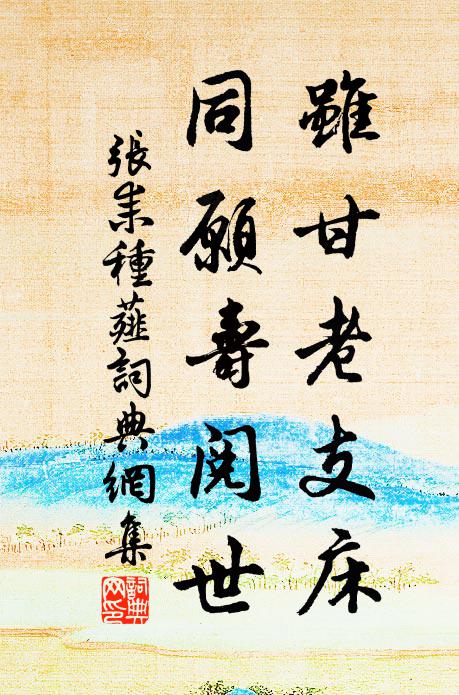 雖甘老支床
同願壽閱世
張耒種薤詞典網集
詞典
网印